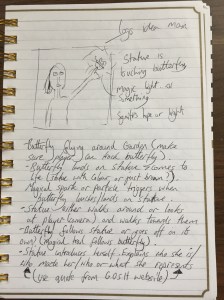 idea man
Statue is
touching butterfly
magic light or
something
ignites up or light
- Butterfly flying around Garden (make
sure player can track butterfly)
- Butterfly lands on statue & comes to
life (statue with colour or just brown?)
- Magical spark or particle triggers when
butterfly lands on statue.
- Statue either walks around or looks
at player (camera) and walks towards them
- Butterfly follows statue or goes off on its
own (Magical trail follows butterfly)
- Statue introduces herself. Explaining who she is/
who made her/who or what she represents
(use quote from G.O.S.H website)